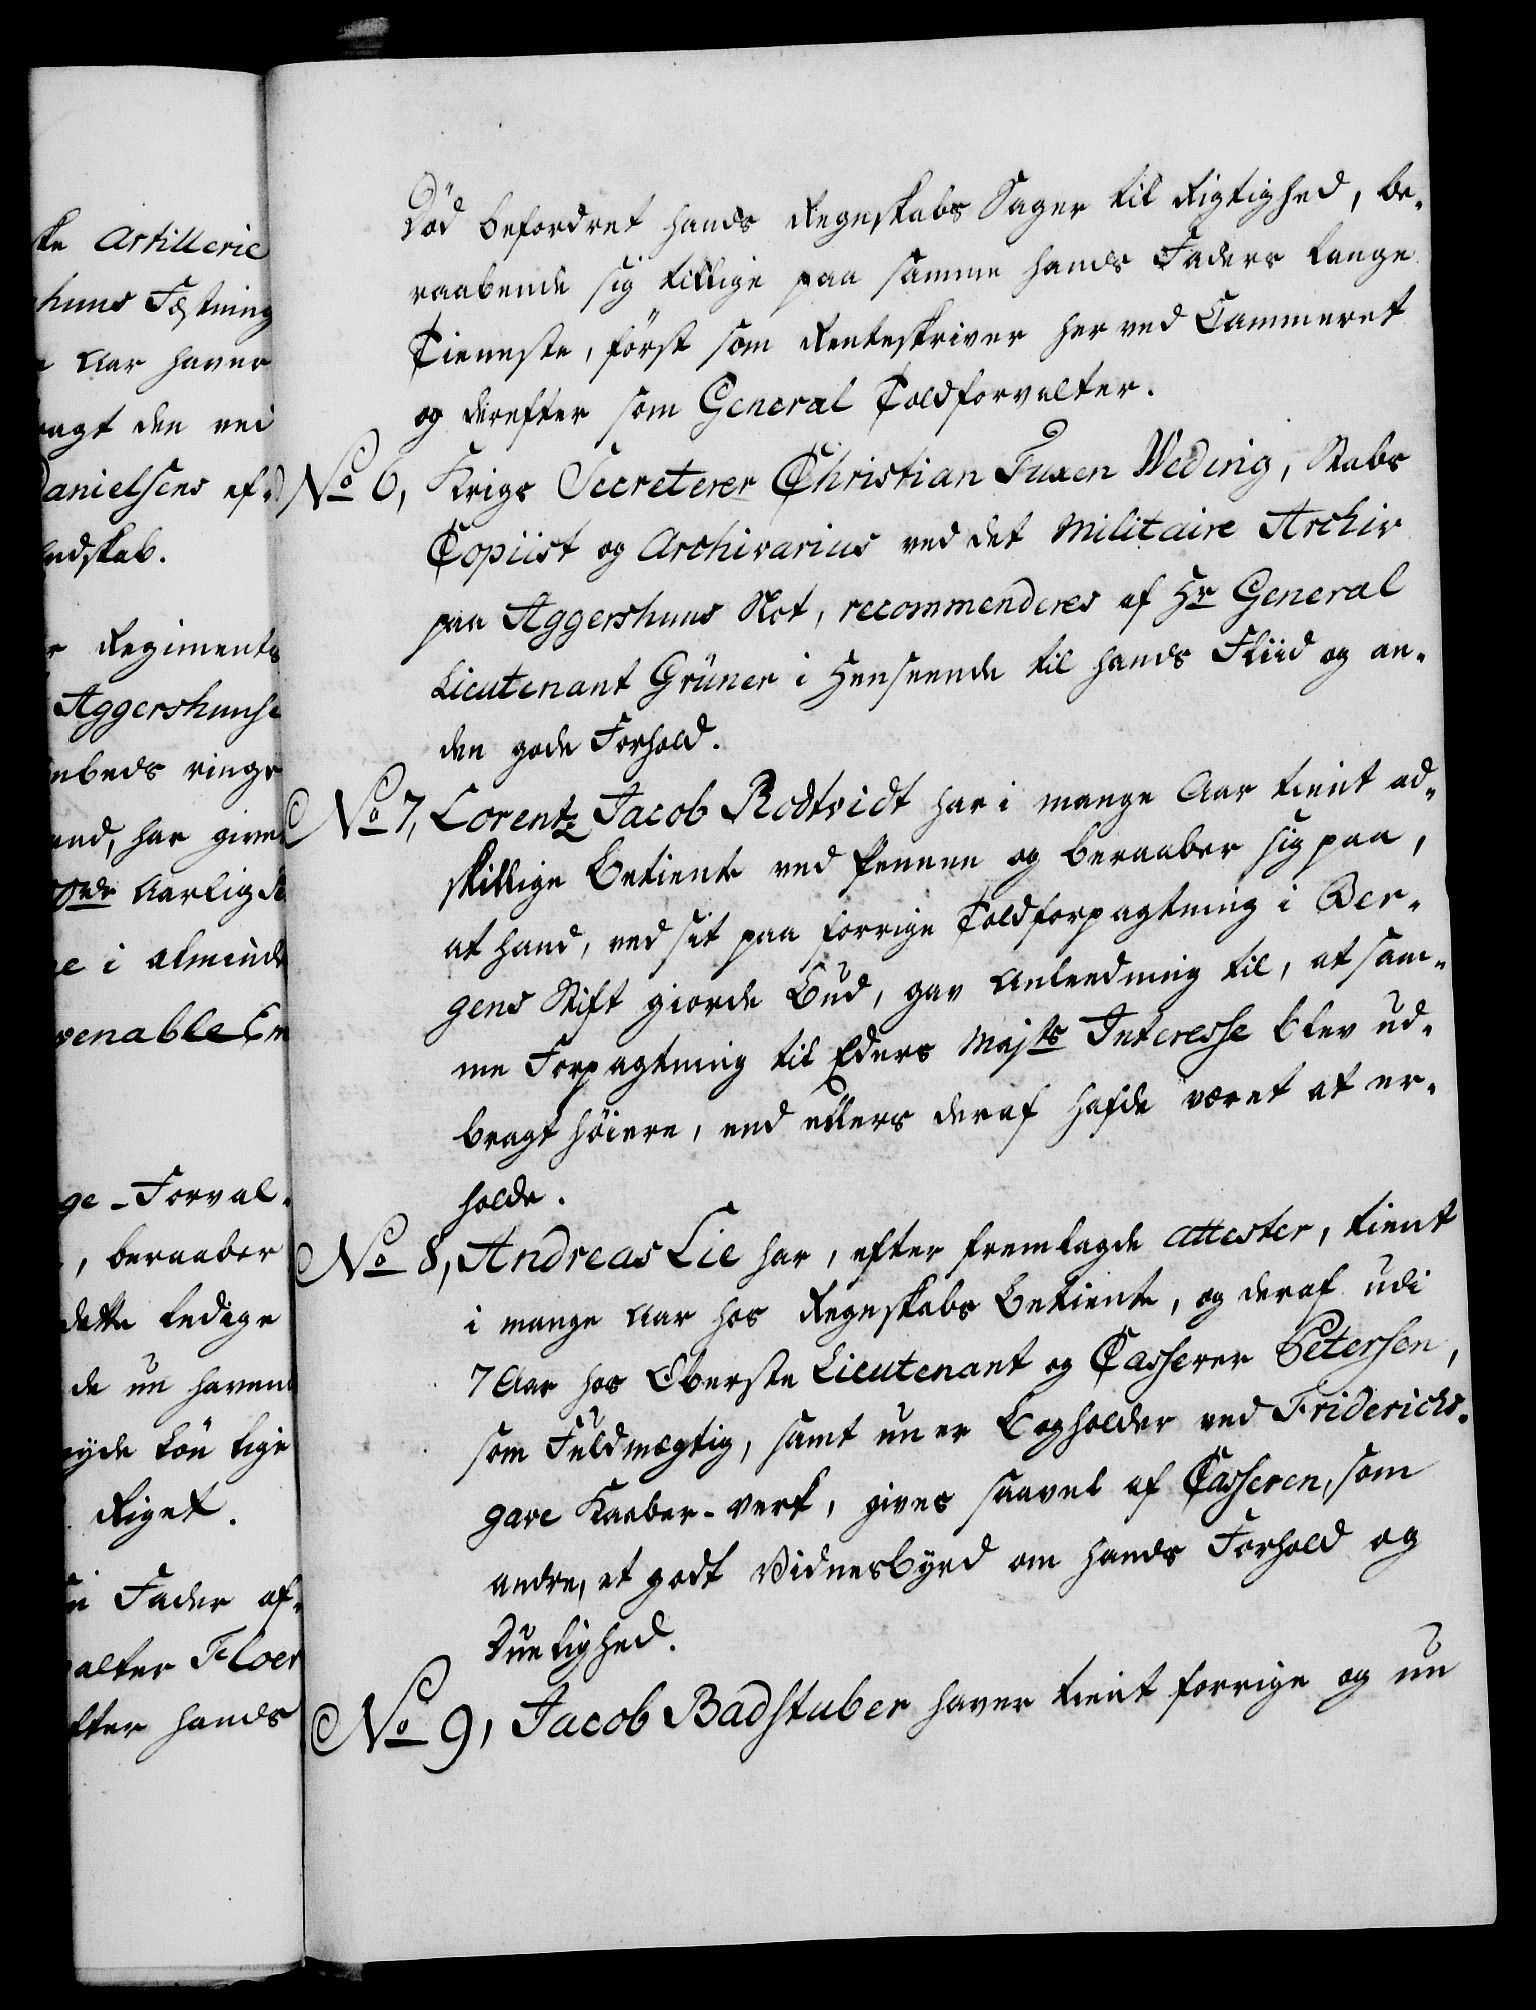 ske Artillerie
huus Fæstning
Aar haver
ragt den ved
Danielsens ef-
ndskab.
Regiments
Aggershuuse
embeds ringe
and, har givet
aarlig
i almind
venable Em
ge-Forval-
, beraaber
dette ledige
de nu havende
nyde Løn lige
Riget.
Fader af-
valter Floer
efter hands
Död befordret hands Regnskabs Sager til Rigtighed, be-
raabende sig tillige paa samme hands Faders lange
Tieneste, först som Renteskriver her ved Cammeret
og derefter som General Toldforvalter.
No 6, Krigs Secreterer Christian Tuxen Weding, Stabs
Copiist og Archivarius ved det Militaire Archiv
paa Aggershuus Slot, recommenderes af Hr General
Lieutenant Grüner i Henseende til hands Fliid og an-
den gode Forhold.
No 7, Lorentz Jacob Rodtvidt har i mange Aar tient ad-
skillige Betiente ved Pennen og beraaber sig paa,
at hand, ved sit paa forrige Toldforpagtning i Ber-
gens Stift giorde Bud, gav Anleedning til, at sam-
me Forpagtning til Eders Majts Interesse blev ud-
bragt höiere, end ellers deraf hafde været at er-
holde.
No 8, Andreas Lie har, efter fremlagde attester, tient
i mange Aar hos Regnskabs Betiente, og deraf udi
7 Aar hos Oberste Lieutenant og Casserer Petersen,
som Fuldmægtig, samt nu er Bogholder ved Friderichs-
gave Kaaber-verk, gives saavel af Casseren, som
andre, et godt Vidnesbyrd om hands Forhold og
Duelighed.
No 9, Jacob Badstuber haver tient forrige og nu